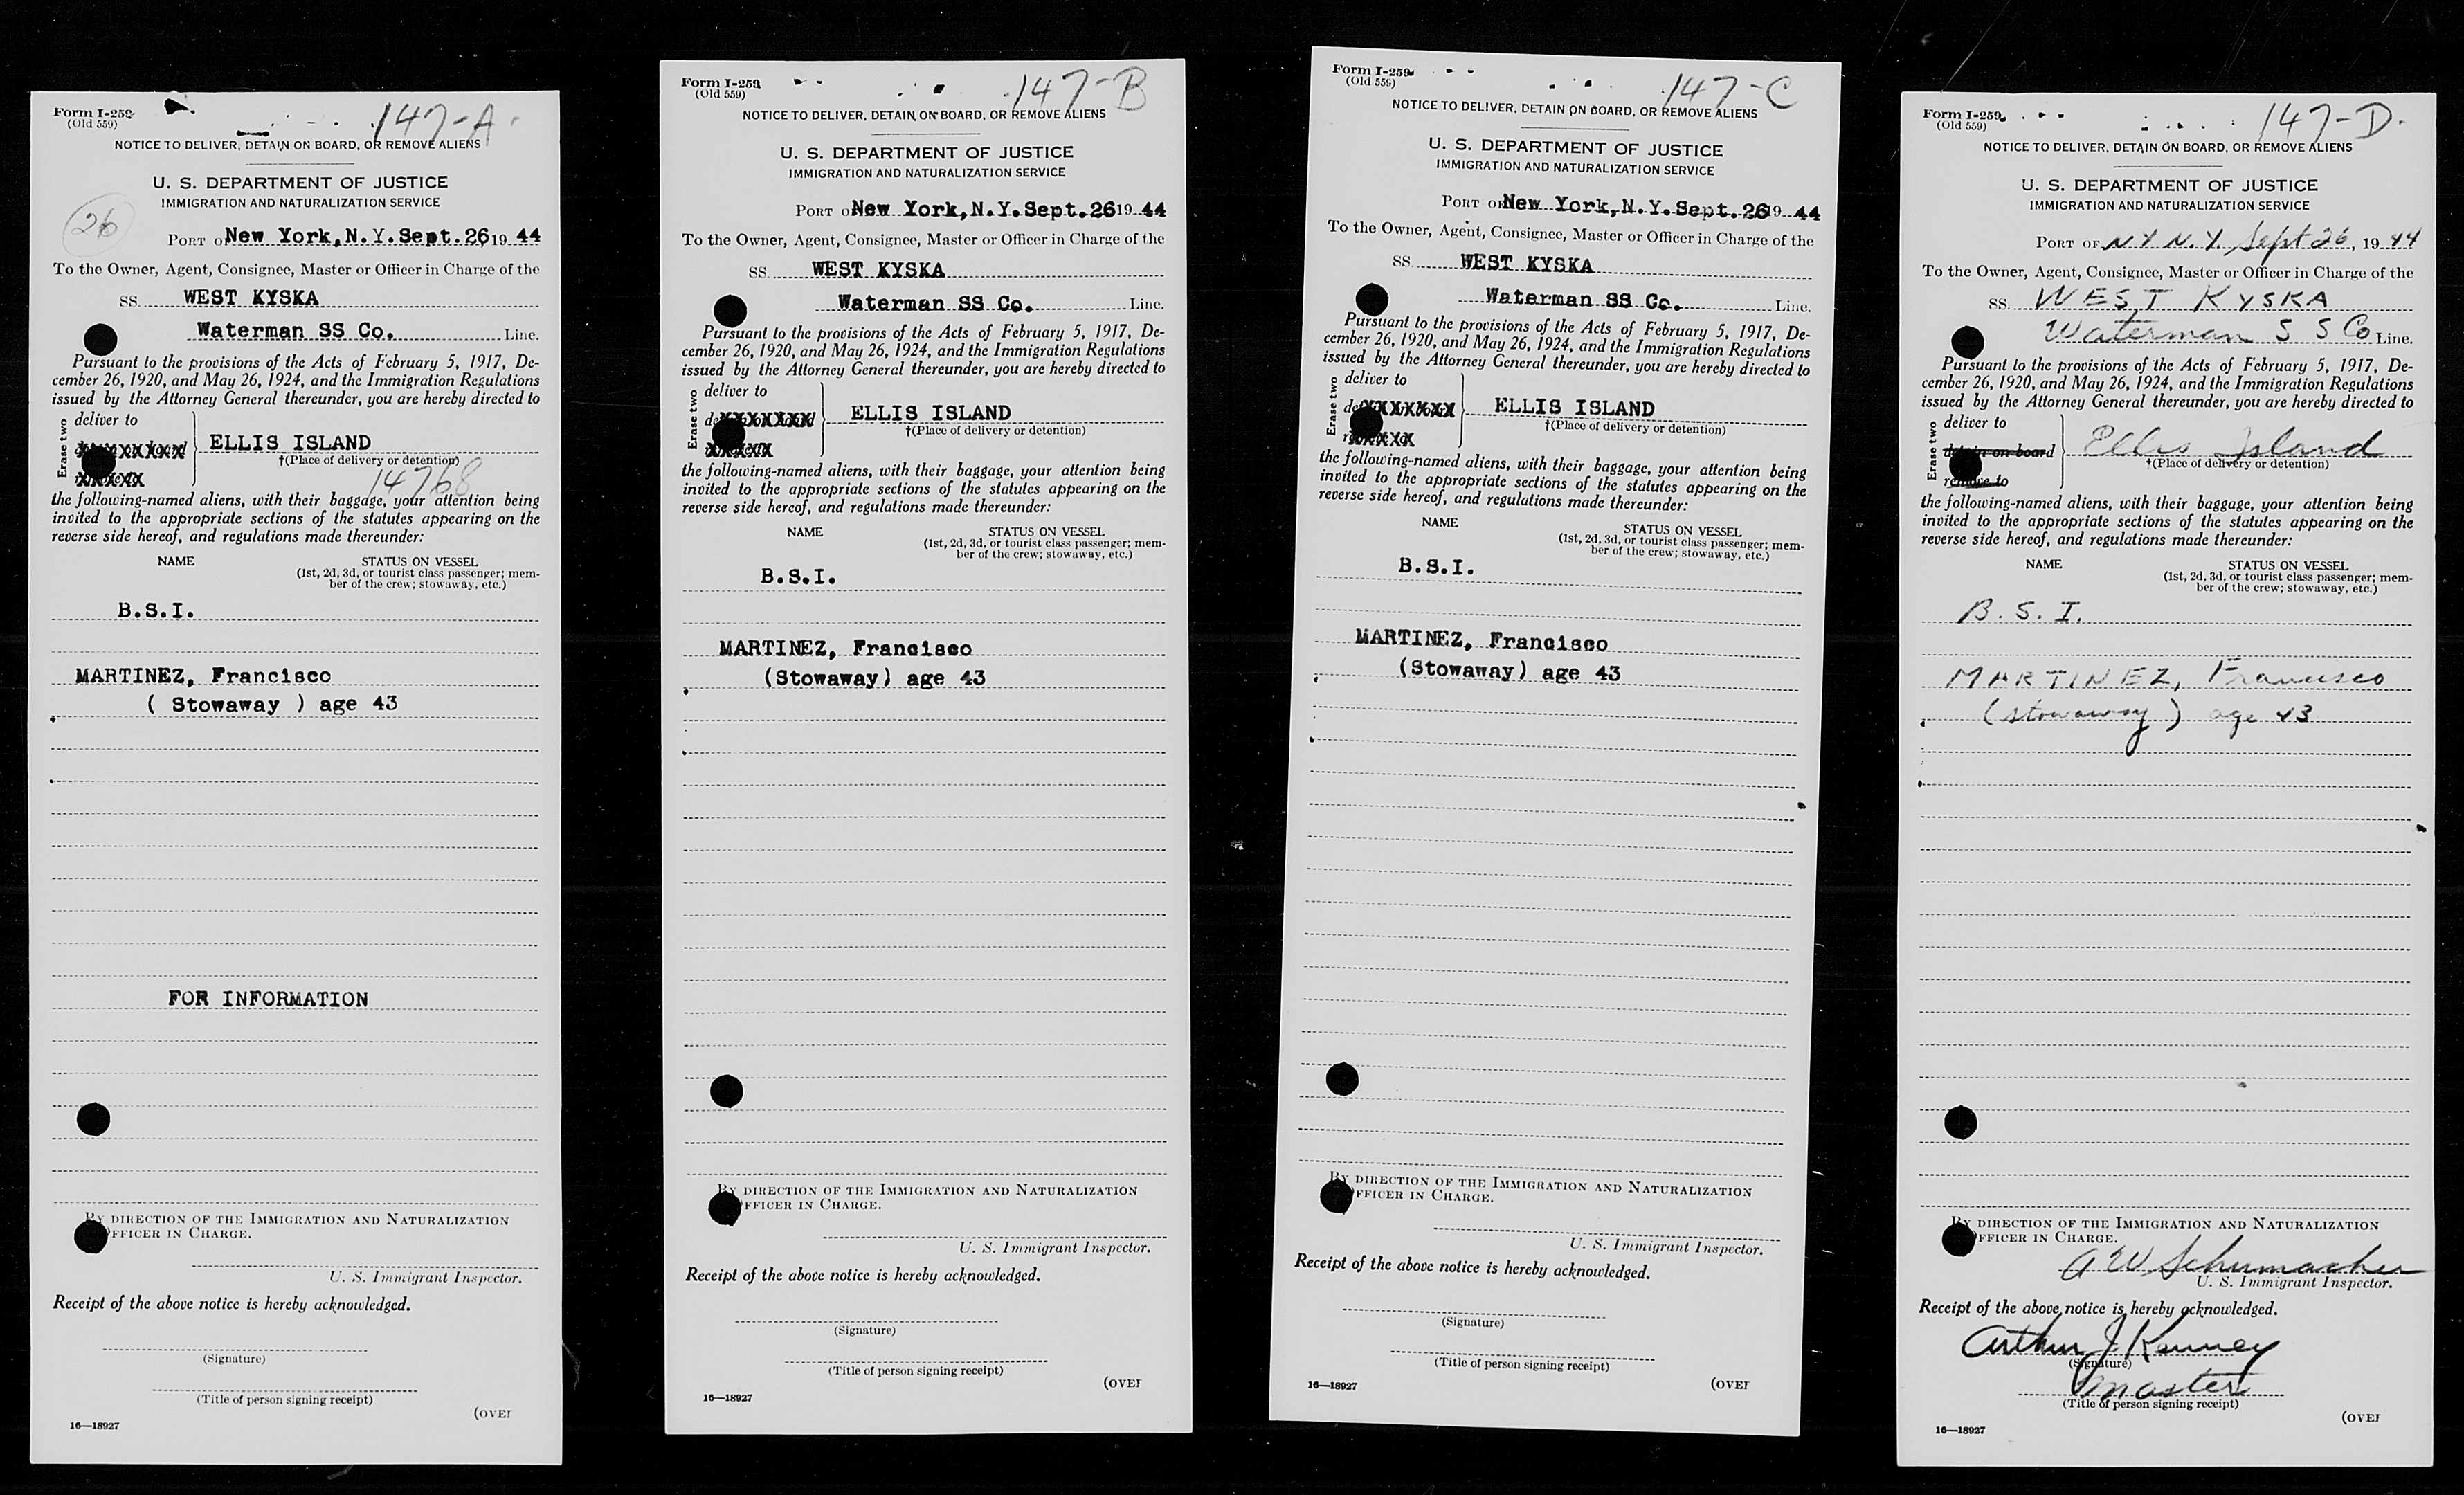 Form I-259
(Old 559)
147-A
NOTICE TO DELIVER, DETAIN ON BOARD, OR REMOVE ALIENS
U. S. DEPARTMENT OF JUSTICE
IMMIGRATION AND NATURALIZATION SERVICE
26
PORT OF New York, N.Y. Sept. 26 19 44
To the Owner, Agent, Consignee, Master or Officer in Charge of the
SS. WEST KYSKA
Waterman SS Co. Line.
Pursuant to the provisions of the Acts of February 5, 1917, De-
cember 26, 1920, and May 26, 1924, and the Immigration Regulations
issued by the Attorney General thereunder, you are hereby directed to
Erase two
deliver to
ELLIS ISLAND
†(Place of delivery or detention)
14768
the following-named aliens, with their baggage, your attention being
invited to the appropriate sections of the statutes appearing on the
reverse side hereof, and regulations made thereunder:
NAME STATUS ON VESSEL
(1st, 2d, 3d, or tourist class passenger; mem-
ber of the crew; stowaway, etc.)
B.S.I.
MARTINEZ, Francisco
( Stowaway ) age 43
FOR INFORMATION
BY DIRECTION OF THE IMMIGRATION AND NATURALIZATION
OFFICER IN CHARGE.
U. S. Immigrant Inspector.
Receipt of the above notice is hereby acknowledged.
(Signature)
(Title of person signing receipt)
16—18927
(OVER
Form I-259
(Old 559)
147-B
NOTICE TO DELIVER, DETAIN ON BOARD, OR REMOVE ALIENS
U. S. DEPARTMENT OF JUSTICE
IMMIGRATION AND NATURALIZATION SERVICE
PORT OF New York, N.Y. Sept. 26 19 44
To the Owner, Agent, Consignee, Master or Officer in Charge of the
SS. WEST KYSKA
Waterman SS Co. Line.
Pursuant to the provisions of the Acts of February 5, 1917, De-
cember 26, 1920, and May 26, 1924, and the Immigration Regulations
issued by the Attorney General thereunder, you are hereby directed to
Erase two
deliver to
ELLIS ISLAND
†(Place of delivery or detention)
the following-named aliens, with their baggage, your attention being
invited to the appropriate sections of the statutes appearing on the
reverse side hereof, and regulations made thereunder:
NAME STATUS ON VESSEL
(1st, 2d, 3d, or tourist class passenger; mem-
ber of the crew; stowaway, etc.)
B.S.I.
MARTINEZ, Francisco
(Stowaway) age 43
BY DIRECTION OF THE IMMIGRATION AND NATURALIZATION
OFFICER IN CHARGE.
U. S. Immigrant Inspector.
Receipt of the above notice is hereby acknowledged.
(Signature)
(Title of person signing receipt)
16—18927
(OVER
Form I-259
(Old 559)
147-C
NOTICE TO DELIVER, DETAIN ON BOARD, OR REMOVE ALIENS
U. S. DEPARTMENT OF JUSTICE
IMMIGRATION AND NATURALIZATION SERVICE
PORT OF New York, N.Y. Sept. 26 19 44
To the Owner, Agent, Consignee, Master or Officer in Charge of the
SS. WEST KYSKA
Waterman SS Co. Line.
Pursuant to the provisions of the Acts of February 5, 1917, De-
cember 26, 1920, and May 26, 1924, and the Immigration Regulations
issued by the Attorney General thereunder, you are hereby directed to
Erase two
deliver to
ELLIS ISLAND
†(Place of delivery or detention)
the following-named aliens, with their baggage, your attention being
invited to the appropriate sections of the statutes appearing on the
reverse side hereof, and regulations made thereunder:
NAME STATUS ON VESSEL
(1st, 2d, 3d, or tourist class passenger; mem-
ber of the crew; stowaway, etc.)
B.S.I.
MARTINEZ, Francisco
(Stowaway) age 43
BY DIRECTION OF THE IMMIGRATION AND NATURALIZATION
OFFICER IN CHARGE.
U. S. Immigrant Inspector.
Receipt of the above notice is hereby acknowledged.
(Signature)
(Title of person signing receipt)
16—18927
(OVER
Form I-259
(Old 559)
147-D.
NOTICE TO DELIVER, DETAIN ON BOARD, OR REMOVE ALIENS
U. S. DEPARTMENT OF JUSTICE
IMMIGRATION AND NATURALIZATION SERVICE
PORT OF N.Y. N.Y. Sept 26, 19 44
To the Owner, Agent, Consignee, Master or Officer in Charge of the
SS. WEST KYSKA
Waterman S S Co Line.
Pursuant to the provisions of the Acts of February 5, 1917, De-
cember 26, 1920, and May 26, 1924, and the Immigration Regulations
issued by the Attorney General thereunder, you are hereby directed to
Erase two
deliver to
detain on board
remove to
Ellis Island
†(Place of delivery or detention)
the following-named aliens, with their baggage, your attention being
invited to the appropriate sections of the statutes appearing on the
reverse side hereof, and regulations made thereunder:
NAME STATUS ON VESSEL
(1st, 2d, 3d, or tourist class passenger; mem-
ber of the crew; stowaway, etc.)
B.S.I.
MARTINEZ, Francisco
(stowaway) age 43
BY DIRECTION OF THE IMMIGRATION AND NATURALIZATION
OFFICER IN CHARGE.
A W Schumacher
U. S. Immigrant Inspector.
Receipt of the above notice is hereby acknowledged.
Arthur J Kenney
(Signature)
Master
(Title of person signing receipt)
16—18927
(OVER